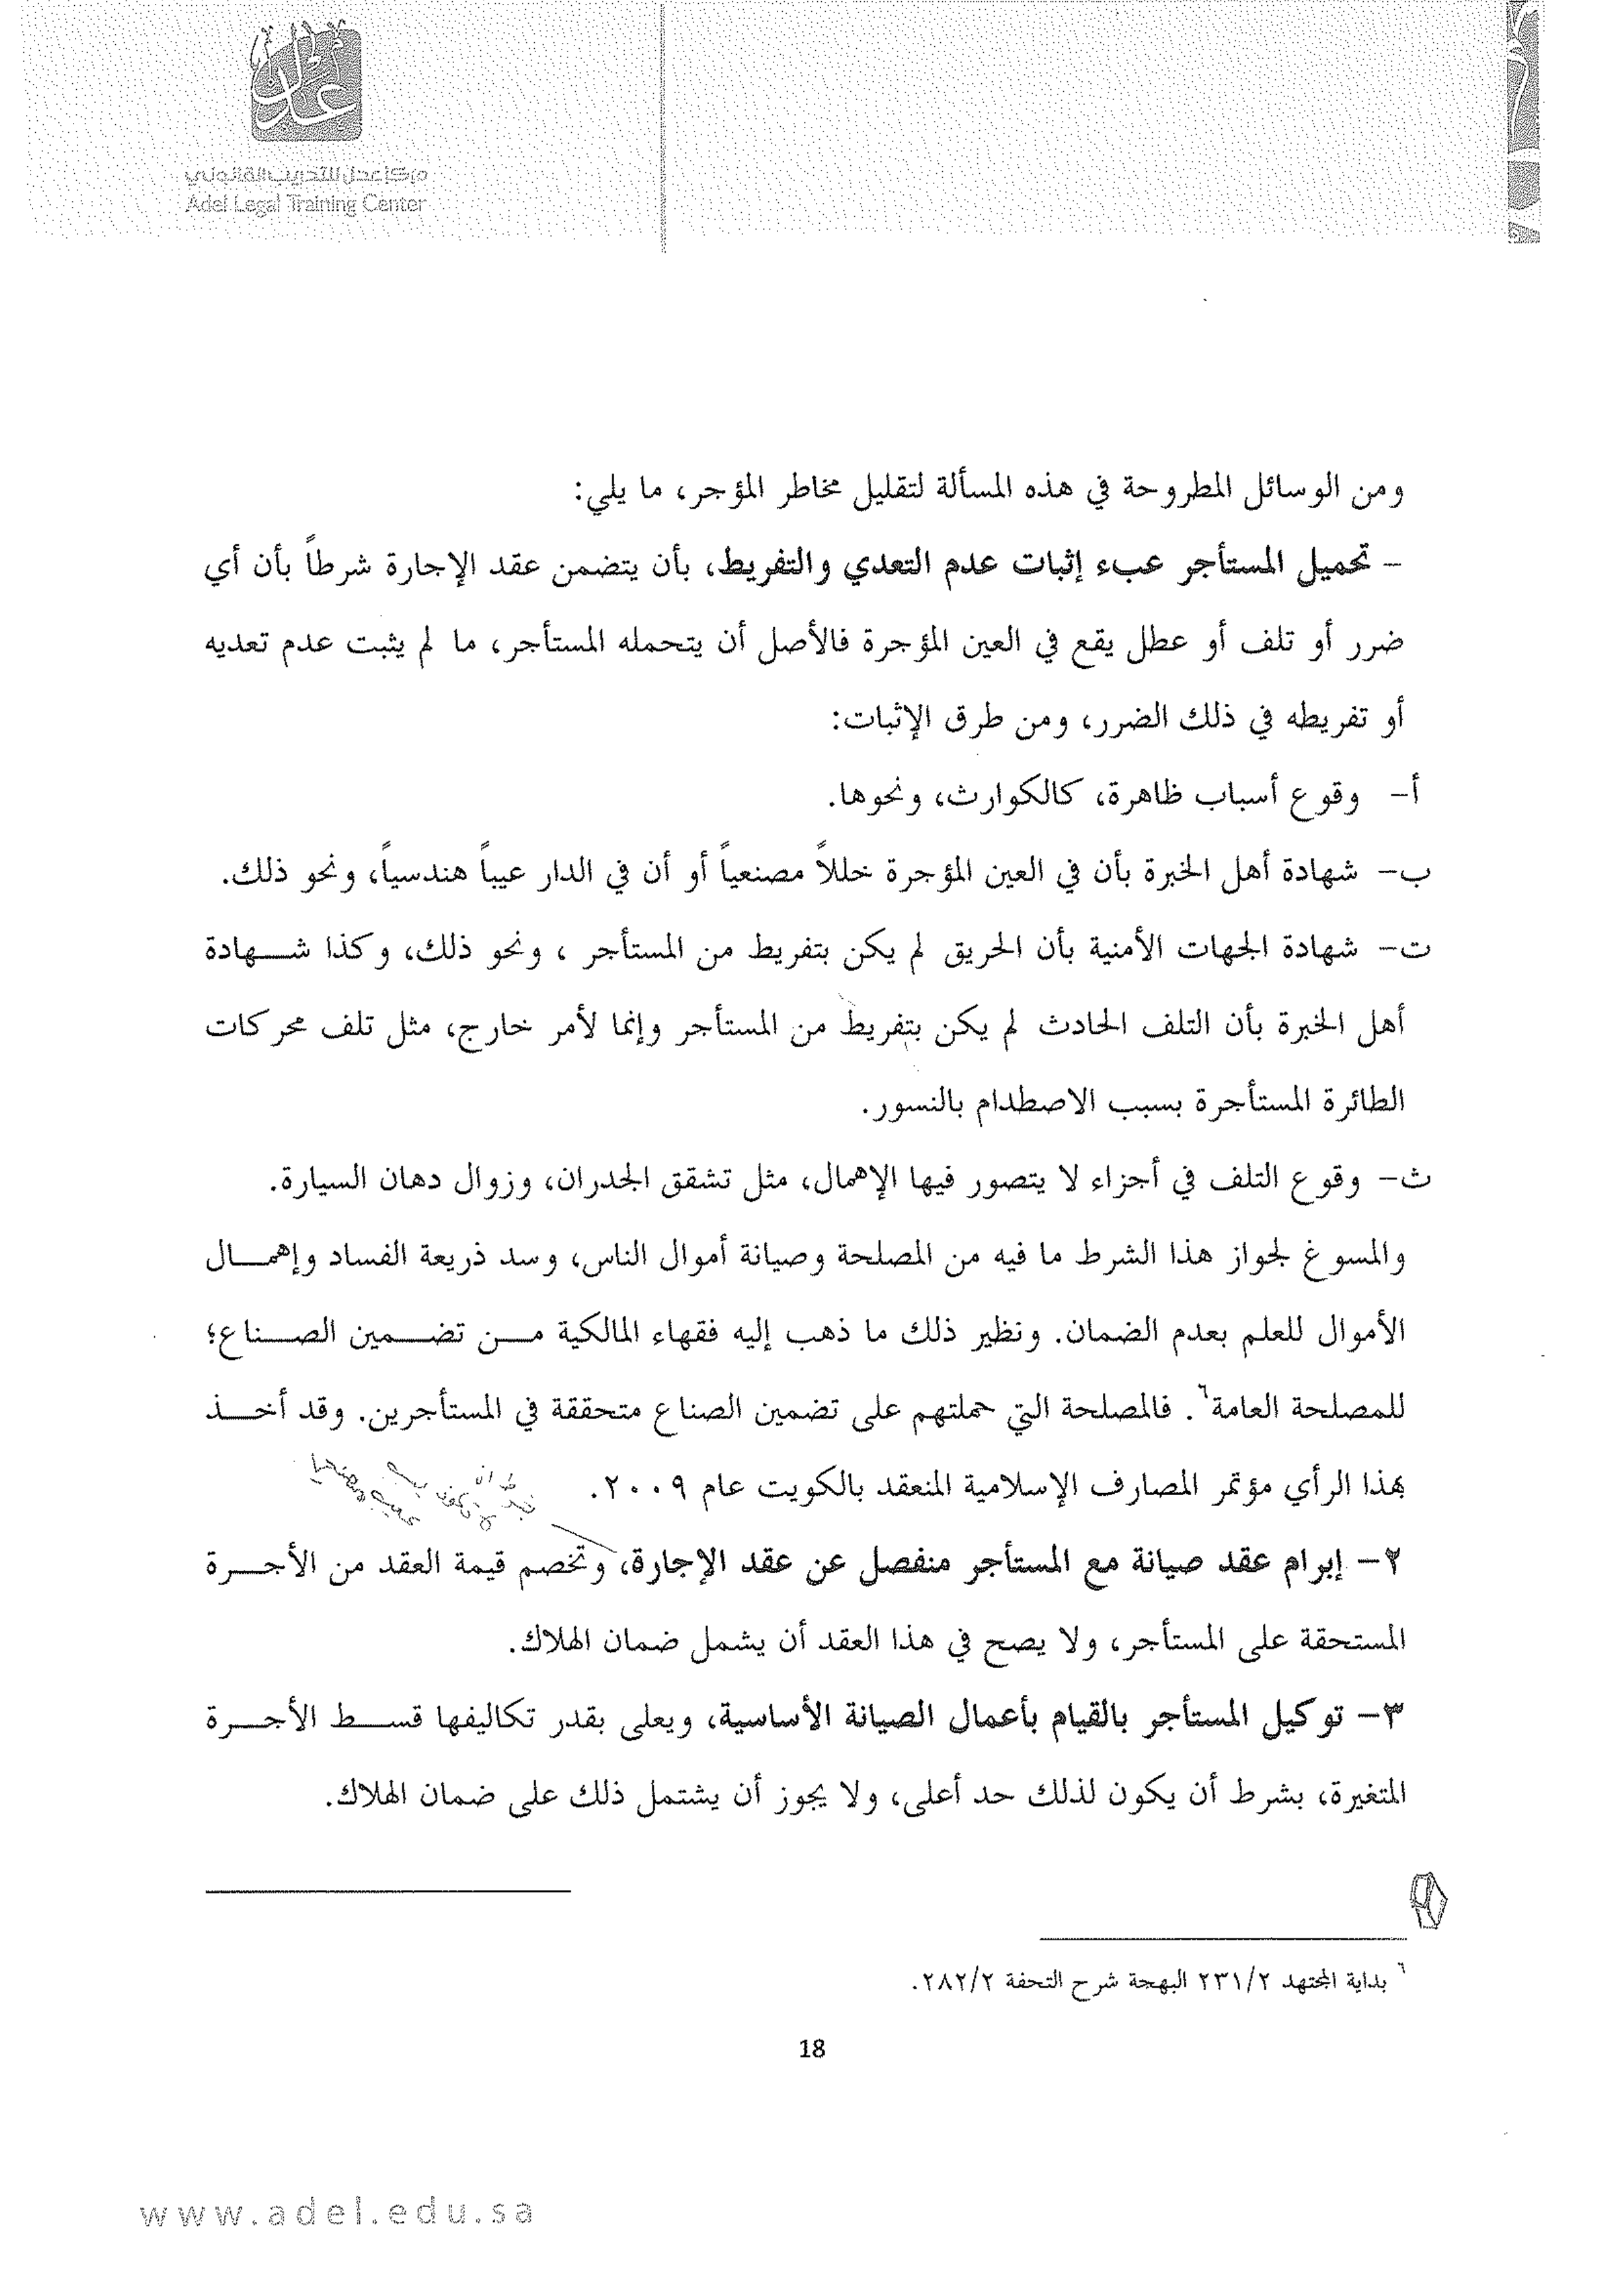 مركز عدل للتدريب القانوني
Adel Legal Training Center
ومن الوسائل المطروحة في هذه المسألة لتقليل مخاطر المؤجر، ما يلي:
– تحميل المستأجر عبء إثبات عدم التعدي والتفريط، بأن يتضمن عقد الإجارة شرطاً بأن أي
ضرر أو تلف أو عطل يقع في العين المؤجرة فالأصل أن يتحمله المستأجر، ما لم يثبت عدم تعديه
أو تفريطه في ذلك الضرر، ومن طرق الإثبات:
أ– وقوع أسباب ظاهرة، كالكوارث، ونحوها.
ب– شهادة أهل الخبرة بأن في العين المؤجرة خللاً مصنعياً أو أن في الدار عيباً هندسياً، ونحو ذلك.
ت– شهادة الجهات الأمنية بأن الحريق لم يكن بتفريط من المستأجر ، ونحو ذلك، وكذا شـــهادة
أهل الخبرة بأن التلف الحادث لم يكن بتفريط من المستأجر وإنما لأمر خارج، مثل تلف محركات
الطائرة المستأجرة بسبب الاصطدام بالنسور.
ث– وقوع التلف في أجزاء لا يتصور فيها الإهمال، مثل تشقق الجدران، وزوال دهان السيارة.
والمسوغ لجواز هذا الشرط ما فيه من المصلحة وصيانة أموال الناس، وسد ذريعة الفساد وإهمـــال
الأموال للعلم بعدم الضمان. ونظير ذلك ما ذهب إليه فقهاء المالكية مـــن تضـــمين الصـــناع؛
للمصلحة العامة٦. فالمصلحة التي حملتهم على تضمين الصناع متحققة في المستأجرين. وقد أخـــذ
بهذا الرأي مؤتمر المصارف الإسلامية المنعقد بالكويت عام ٢٠٠٩.
٢– إبرام عقد صيانة مع المستأجر منفصل عن عقد الإجارة، وتخصم قيمة العقد من الأجـــرة
المستحقة على المستأجر، ولا يصح في هذا العقد أن يشمل ضمان الهلاك.
٣– توكيل المستأجر بالقيام بأعمال الصيانة الأساسية، ويعلى بقدر تكاليفها قســـط الأجـــرة
المتغيرة، بشرط أن يكون لذلك حد أعلى، ولا يجوز أن يشتمل ذلك على ضمان الهلاك.
٦ بداية المجتهد ٢٣١/٢ البهجة شرح التحفة ٢٨٢/٢.
18
www.adel.edu.sa